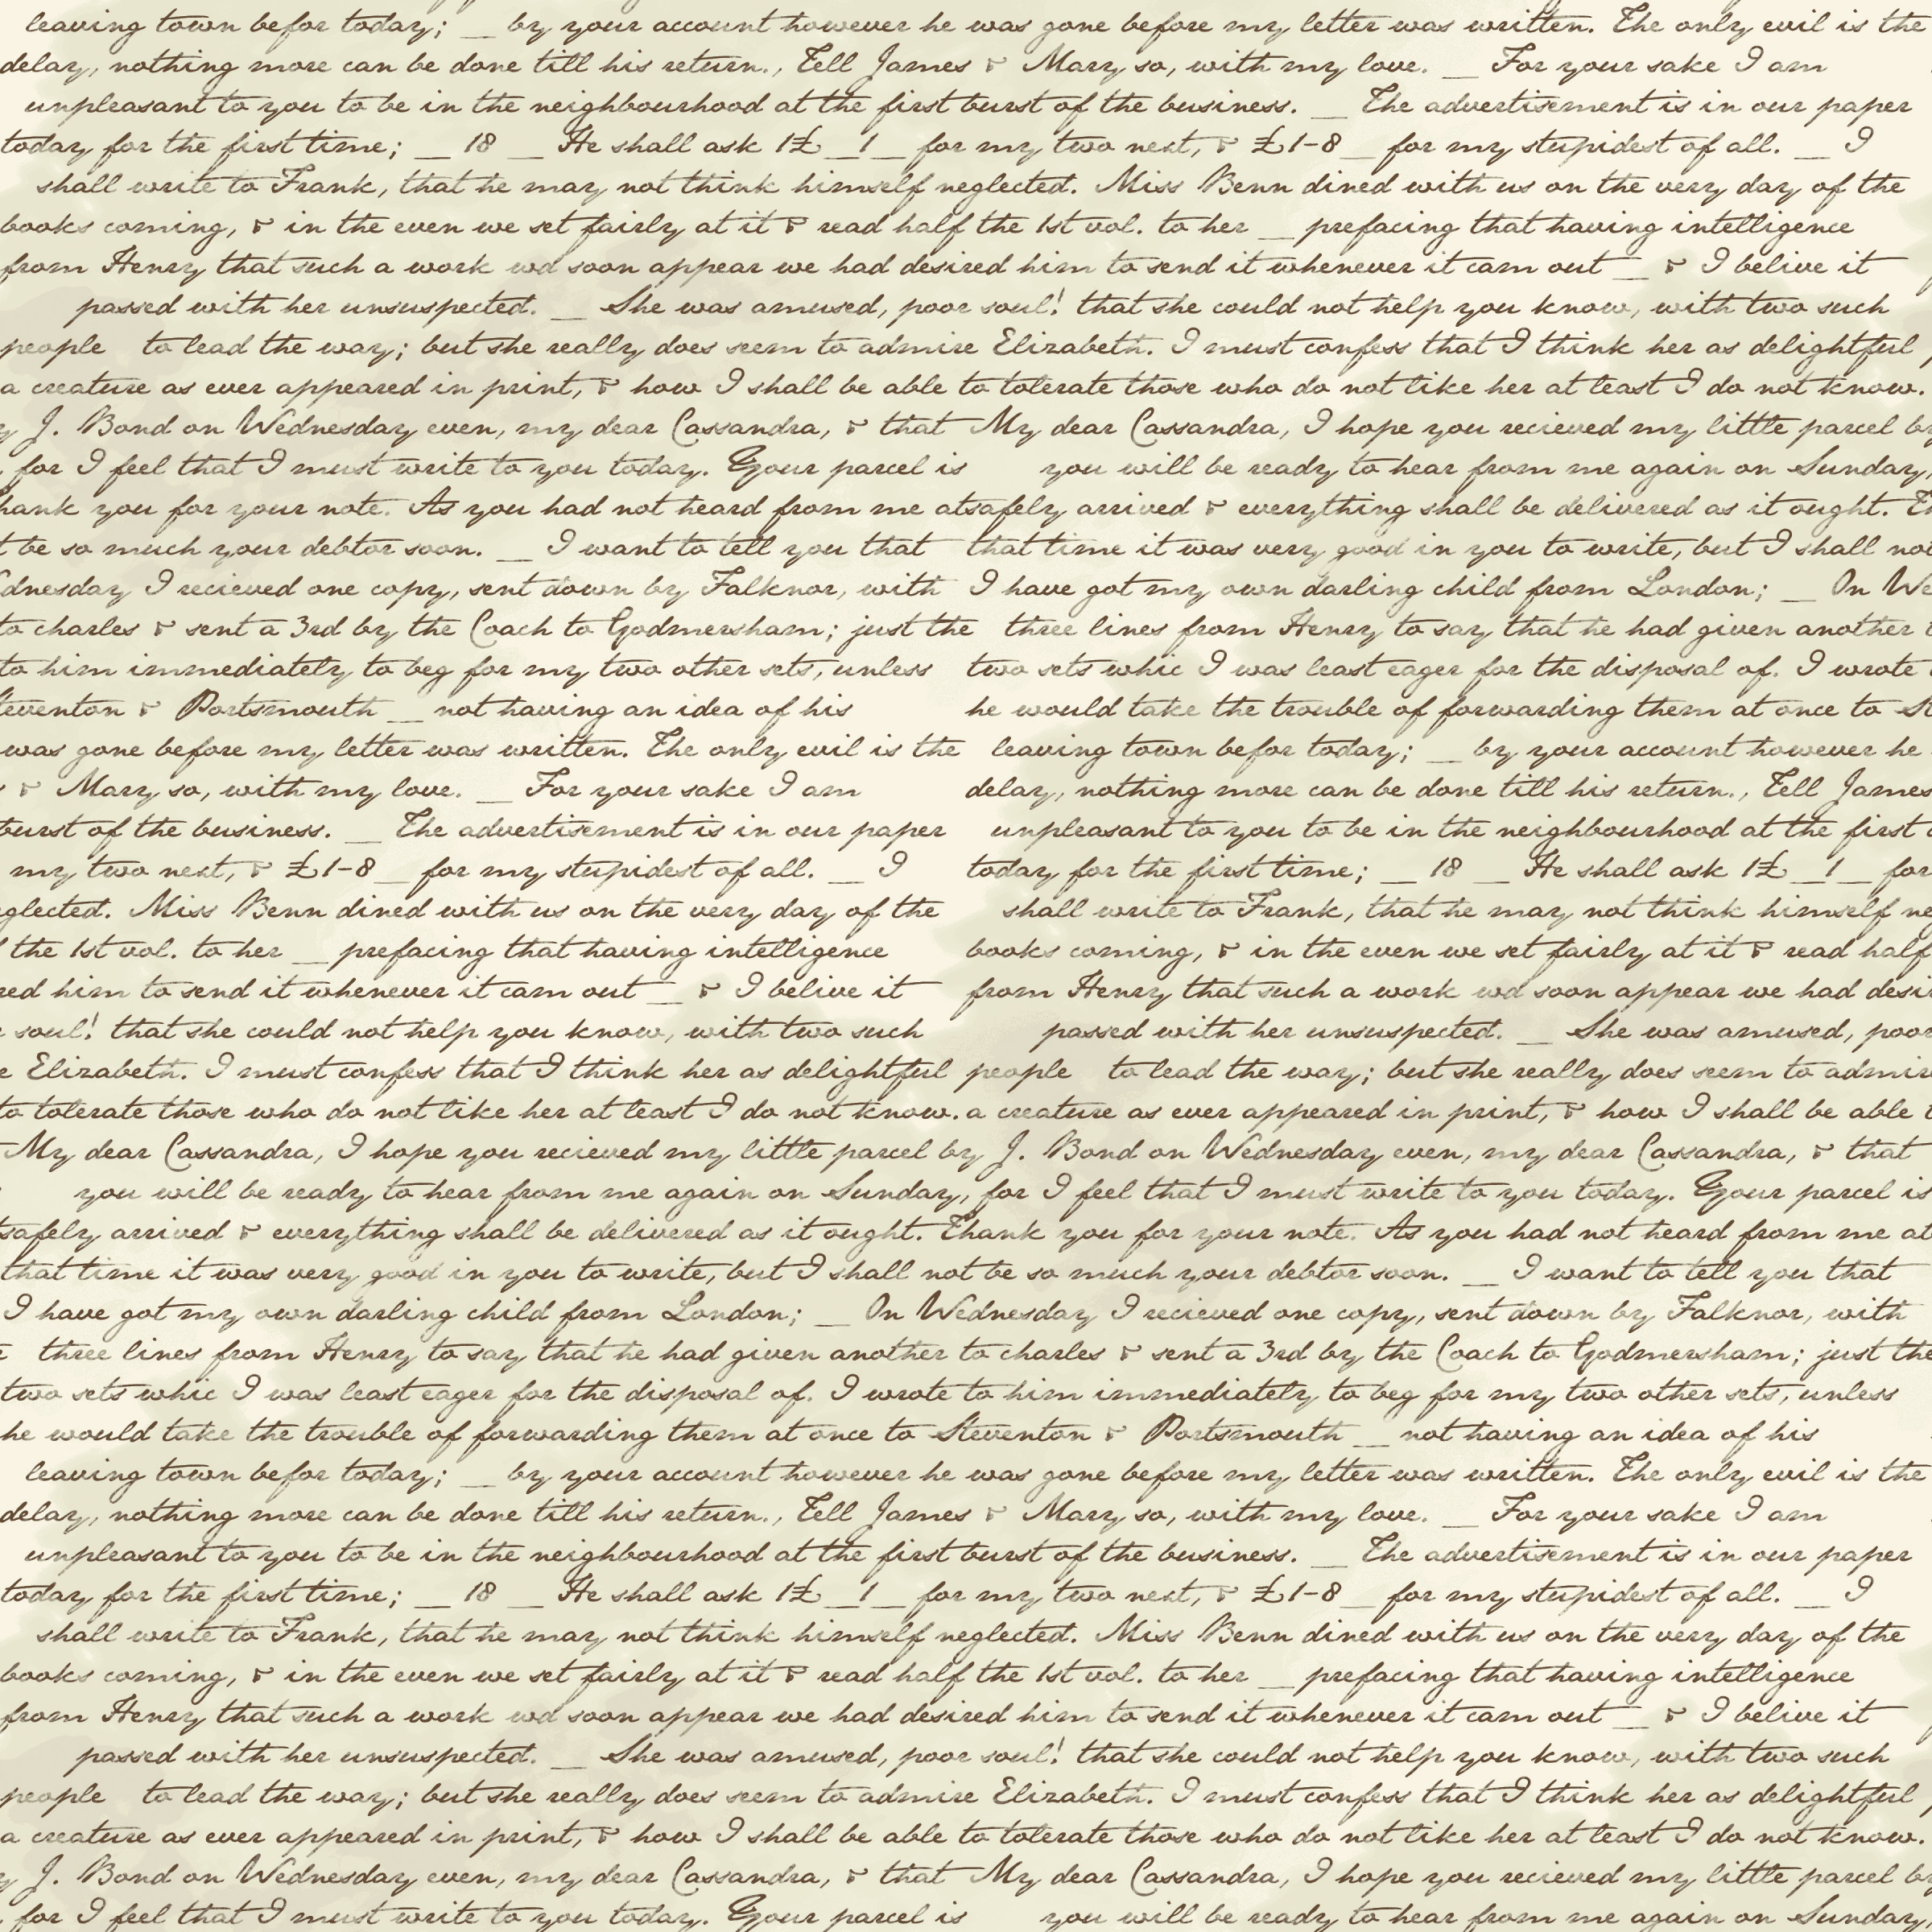 leaving town befor today; _ by your account however he was gone before my letter was written. The only evil is the
delay, nothing more can be done till his return., Tell James & Mary so, with my love. _ For your sake I am
unpleasant to you to be in the neighbourhood at the first burst of the business. _ The advertisement is in our paper
today for the first time; _ 18 _ He shall ask 1£ _1_ for my two next, & £1-8 _ for my stupidest of all. _ I
shall write to Frank, that he may not think himself neglected. Miss Benn dined with us on the very day of the
books coming, & in the even we set fairly at it & read half the 1st vol. to her _ prefacing that having intelligence
from Henry that such a work wd soon appear we had desired him to send it whenever it cam out _ & I belive it
passed with her unsuspected. _ She was amused, poor soul! that she could not help you know, with two such
people to lead the way; but she really does seem to admire Elizabeth. I must confess that I think her as delightful
a creature as ever appeared in print, & how I shall be able to tolerate those who do not like her at least I do not know.
y J. Bond on Wednesday even, my dear Cassandra, & that My dear Cassandra, I hope you recieved my little parcel by
, for I feel that I must write to you today. Your parcel is you will be ready to hear from me again on Sunday,
hank you for your note. As you had not heard from me at safely arrived & everything shall be delivered as it ought. Th
t be so much your debtor soon. _ I want to tell you that that time it was very good in you to write, but I shall not
dnesday I recieved one copy, sent down by Falknor, with I have got my own darling child from London; _ On We
to charles & sent a 3rd by the Coach to Godmersham; just the three lines from Henry to say that he had given another t
to him immediately to beg for my two other sets, unless two sets whic I was least eager for the disposal of. I wrote
teventon & Portsmouth _ not having an idea of his he would take the trouble of forwarding them at once to St
was gone before my letter was written. The only evil is the leaving town befor today; _ by your account however he
& Mary so, with my love. _ For your sake I am delay, nothing more can be done till his return., Tell James
burst of the business. _ The advertisement is in our paper unpleasant to you to be in the neighbourhood at the first
my two next, & £1-8 _ for my stupidest of all. _ I today for the first time; _ 18 _ He shall ask 1£ _1_ for
eglected. Miss Benn dined with us on the very day of the shall write to Frank, that he may not think himself ne
the 1st vol. to her _ prefacing that having intelligence books coming, & in the even we set fairly at it & read half
red him to send it whenever it cam out _ & I belive it from Henry that such a work wd soon appear we had desi
soul! that she could not help you know, with two such passed with her unsuspected. _ She was amused, poor
e Elizabeth. I must confess that I think her as delightful people to lead the way; but she really does seem to admir
to tolerate those who do not like her at least I do not know. a creature as ever appeared in print, & how I shall be able t
My dear Cassandra, I hope you recieved my little parcel by J. Bond on Wednesday even, my dear Cassandra, & that
you will be ready to hear from me again on Sunday, for I feel that I must write to you today. Your parcel is
safely arrived & everything shall be delivered as it ought. Thank you for your note. As you had not heard from me at
that time it was very good in you to write, but I shall not be so much your debtor soon. _ I want to tell you that
I have got my own darling child from London; _ On Wednesday I recieved one copy, sent down by Falknor, with
three lines from Henry to say that he had given another to charles & sent a 3rd by the Coach to Godmersham; just the
two sets whic I was least eager for the disposal of. I wrote to him immediately to beg for my two other sets, unless
he would take the trouble of forwarding them at once to Steventon & Portsmouth _ not having an idea of his
leaving town befor today; _ by your account however he was gone before my letter was written. The only evil is the
delay, nothing more can be done till his return., Tell James & Mary so, with my love. _ For your sake I am
unpleasant to you to be in the neighbourhood at the first burst of the business. _ The advertisement is in our paper
today for the first time; _ 18 _ He shall ask 1£ _1_ for my two next, & £1-8 _ for my stupidest of all. _ I
shall write to Frank, that he may not think himself neglected. Miss Benn dined with us on the very day of the
books coming, & in the even we set fairly at it & read half the 1st vol. to her _ prefacing that having intelligence
from Henry that such a work wd soon appear we had desired him to send it whenever it cam out _ & I belive it
passed with her unsuspected. _ She was amused, poor soul! that she could not help you know, with two such
people to lead the way; but she really does seem to admire Elizabeth. I must confess that I think her as delightful
a creature as ever appeared in print, & how I shall be able to tolerate those who do not like her at least I do not know.
y J. Bond on Wednesday even, my dear Cassandra, & that My dear Cassandra, I hope you recieved my little parcel by
, for I feel that I must write to you today. Your parcel is you will be ready to hear from me again on Sunday